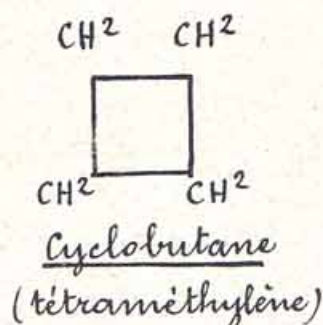 CH² CH²
CH² CH²
Cyclobutane
(tétraméthylène)